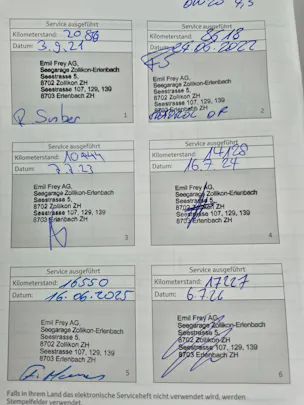 Service ausgeführt
Kilometerstand: 2086
Datum: 3.9.21
Emil Frey AG,
Seegarage Zollikon-Erlenbach
Seestrasse 5,
8702 Zollikon ZH
Seestrasse 107, 129, 139
8703 Erlenbach ZH
1
Service ausgeführt
Kilometerstand: 8618
Datum: 24.06.2022
Emil Frey AG,
Seegarage Zollikon-Erlenbach
Seestrasse 5,
8702 Zollikon ZH
Seestrasse 107, 129, 139
8703 Erlenbach ZH
2
Service ausgeführt
Kilometerstand:
Datum: 7.7.23
Emil Frey AG,
Seegarage Zollikon-Erlenbach
Seestrasse 5,
8702 Zollikon ZH
Seestrasse 107, 129, 139
8703 Erlenbach ZH
3
Service ausgeführt
Kilometerstand: 14128
Datum: 16.7.24
Emil Frey AG,
Seegarage Zollikon-Erlenbach
Seestrasse 5,
8702 Zollikon ZH
Seestrasse 107, 129, 139
8703 Erlenbach ZH
4
Service ausgeführt
Kilometerstand: 16550
Datum: 16.06.2025
Emil Frey AG,
Seegarage Zollikon-Erlenbach
Seestrasse 5,
8702 Zollikon ZH
Seestrasse 107, 129, 139
8703 Erlenbach ZH
5
Service ausgeführt
Kilometerstand: 17227
Datum: 6.7.26
Emil Frey AG,
Seegarage Zollikon-Erlenbach
Seestrasse 5,
8702 Zollikon ZH
Seestrasse 107, 129, 139
8703 Erlenbach ZH
6
Falls in Ihrem Land das elektronische Serviceheft nicht verwendet wird, werden
Stempelfelder verwendet.